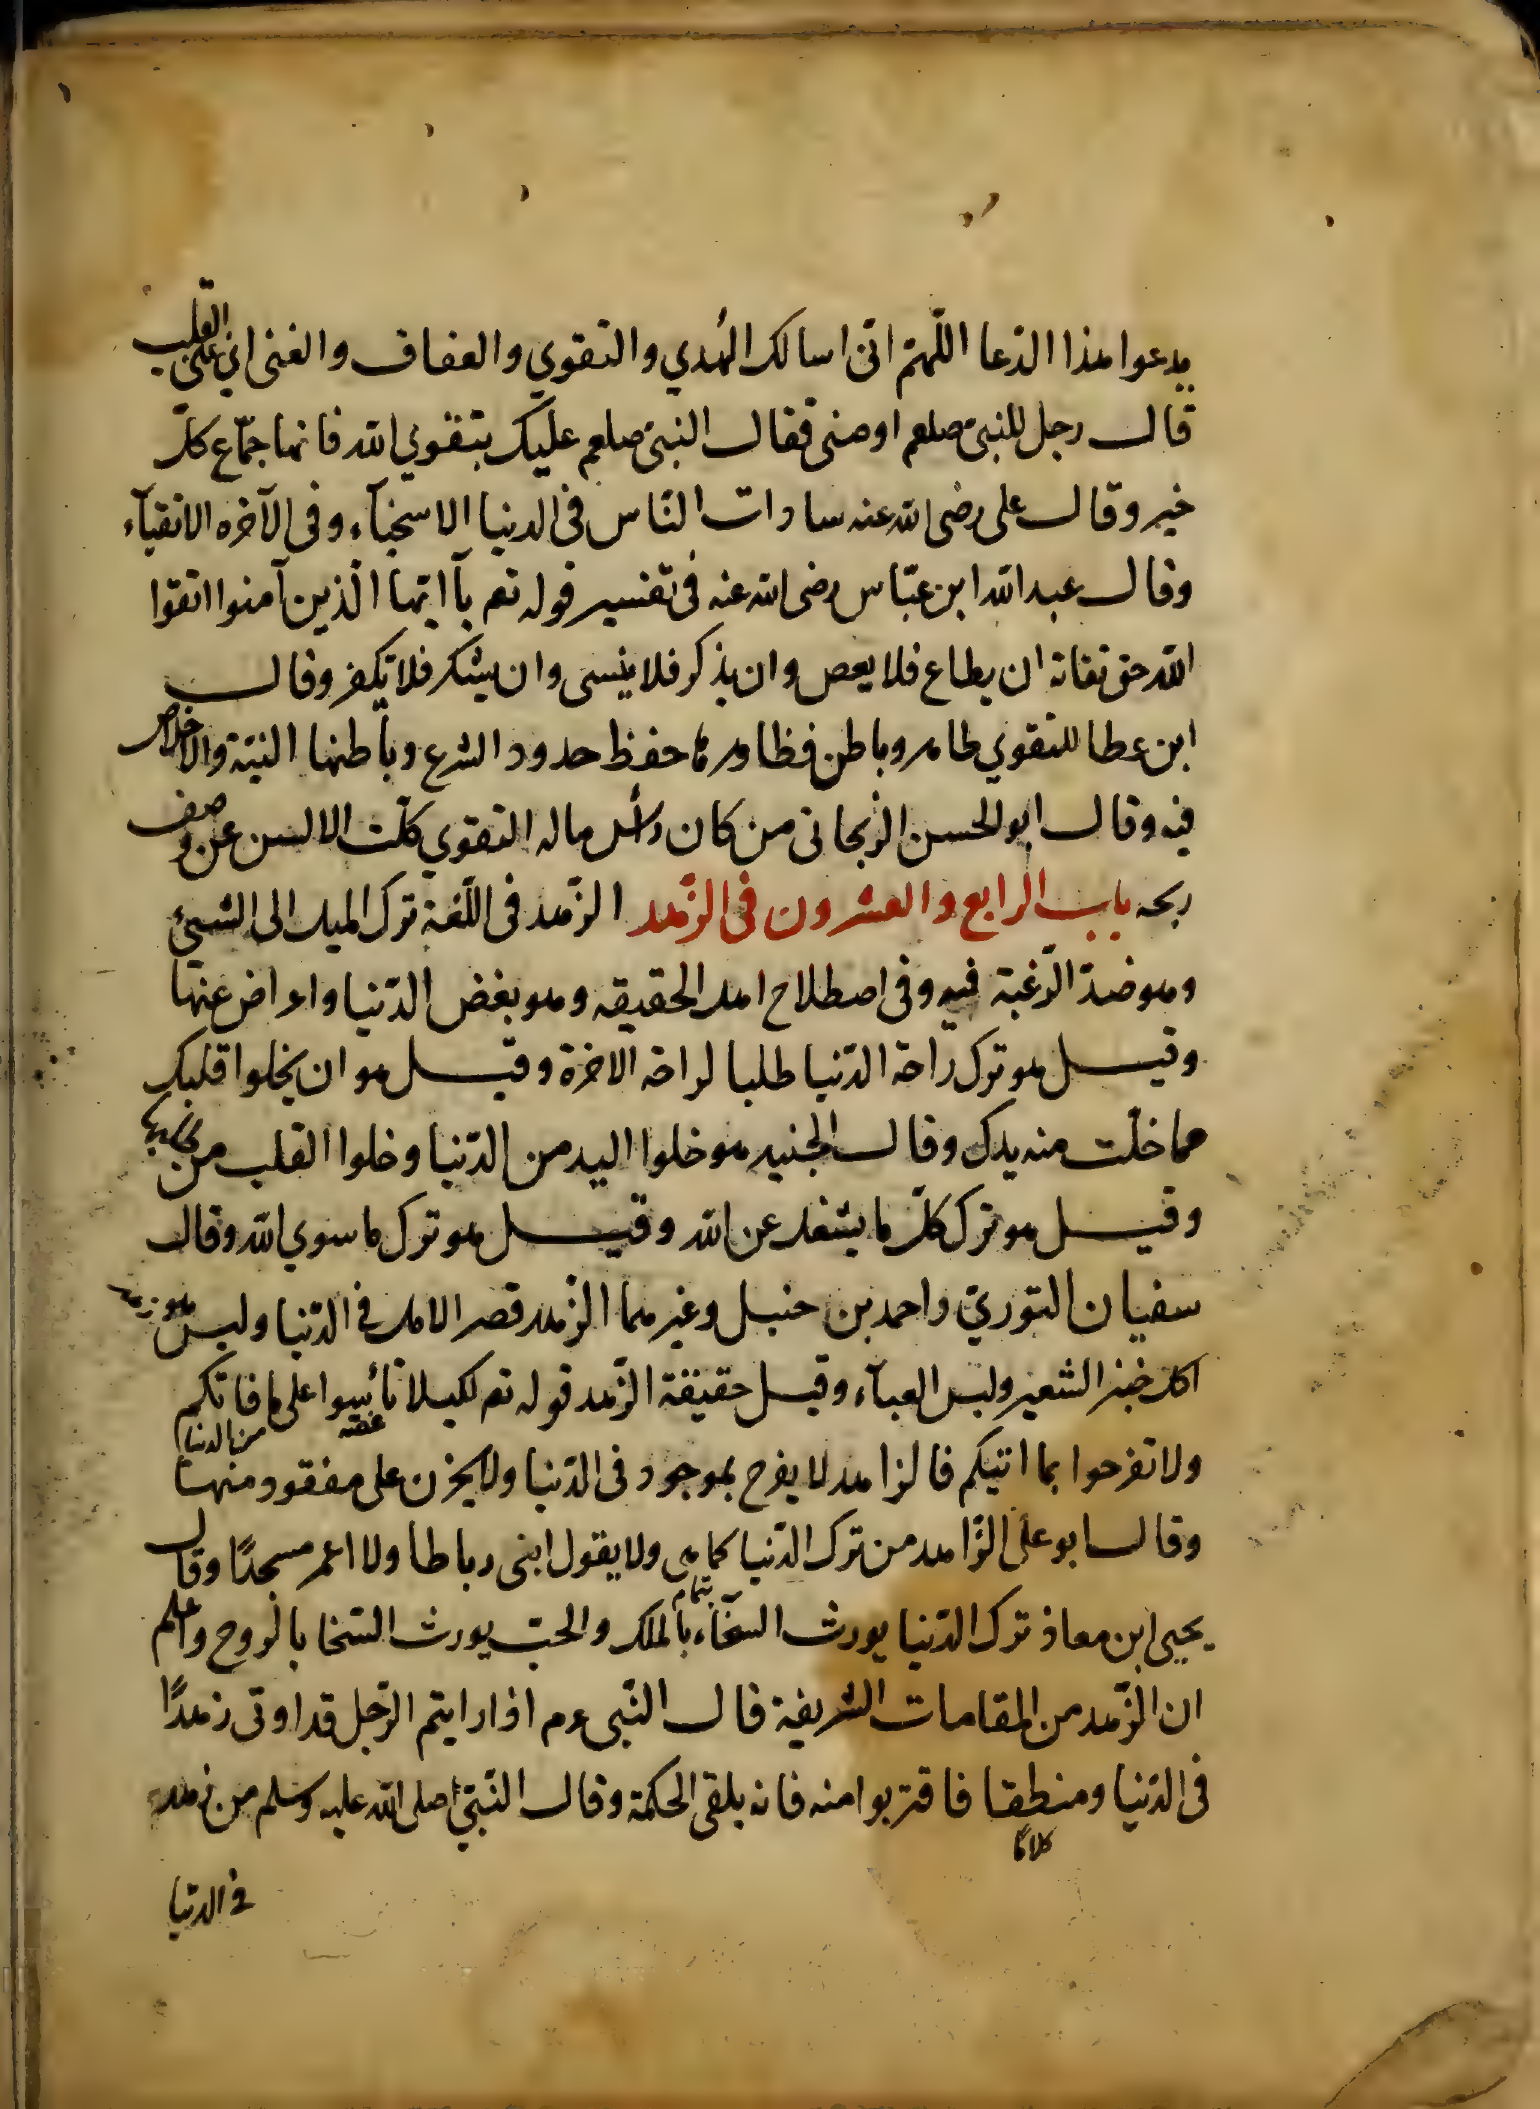 يدعوا هذا الدّعا اللّهمّ انّى اسالك الهُدي والتقوي والعفاف والغنى اي غنى القلب
قال رجل للنبىّ صلعم اوصنى فقال النبىّ صلعم عليك بتقوي الله فانها جمّاع كلّ
خير وقال على رضى الله عنه سادات النّاس فى الدنيا الاسخيآء وفى الآخره الاتقيآء
وقال عبد الله ابن عبّاس رضى الله عنه فى تفسير قوله تعم يآ ايّها الّذين آمنوا اتقوا
الله حق تقاته ان يطاع فلا يعص وان يذكر فلا ينسى وان يشكر فلا يكفر وقال
ابن عطا للتقوي ظاهر وباطن فظاهرها حفظ حدود الشرع وباطنها النيّة والاخلاص
فيه وقال ابو الحسن الزنجانى من كان رأس ماله التقوي كلّت الالسن عن وصف
ربحه باب الرابع والعشرون فى الزّهد الزّهد فى اللّغة ترك الميل الى الشيئ
وهو ضدّ الرّغبة فيه وفى اصطلاح اهل الحقيقه وهو بغض الدّنيا واعراض عنها
وقيل هو ترك راحة الدّنيا طلبا لراحة الاخرة وقيل هو ان يخلوا قلبك
مما خلت منه يدك وقال الجنيد هو خلوا اليد من الدّنيا وخلوا القلب من
وقيل هو ترك كلّ ما يشغل عن الله وقيل هو ترك ما سوي الله وقال
سفيان الثوريّ واحمد بن حنبل وغيرهما الزّهد قصر الامل فى الدّنيا وليس هو زهد
اكل خبز الشعير ولبس العبآء وقيل حقيقة الزّهد قوله تعم لكيلا تأسوا على ما فاتكم
غصه من الدنيا
ولا تفرحوا بما اتيكم فالزاهد لا يفرح بموجود فى الدّنيا ولا يحزن على مفقود منها
وقال ابو على الزّاهد من ترك الدّنيا كما هى ولا يقول ابنى رباطا ولا اعمر مسجدًا وقال
يحيى ابن معاذ ترك الدّنيا يورث السخآء بالملك والحبّ يورث السّخا بالروح واعلم
ان الزّهد من المقامات الشريفة قال النّبى عم اذا رايتم الرّجل قد اوتى زهدًا
فى الدّنيا ومنطقا فاقتربوا منه فانه يلقى الحكمة وقال النّبىّ صلى الله عليه وسلم من زهد
كلامًا
فى الدّنيا